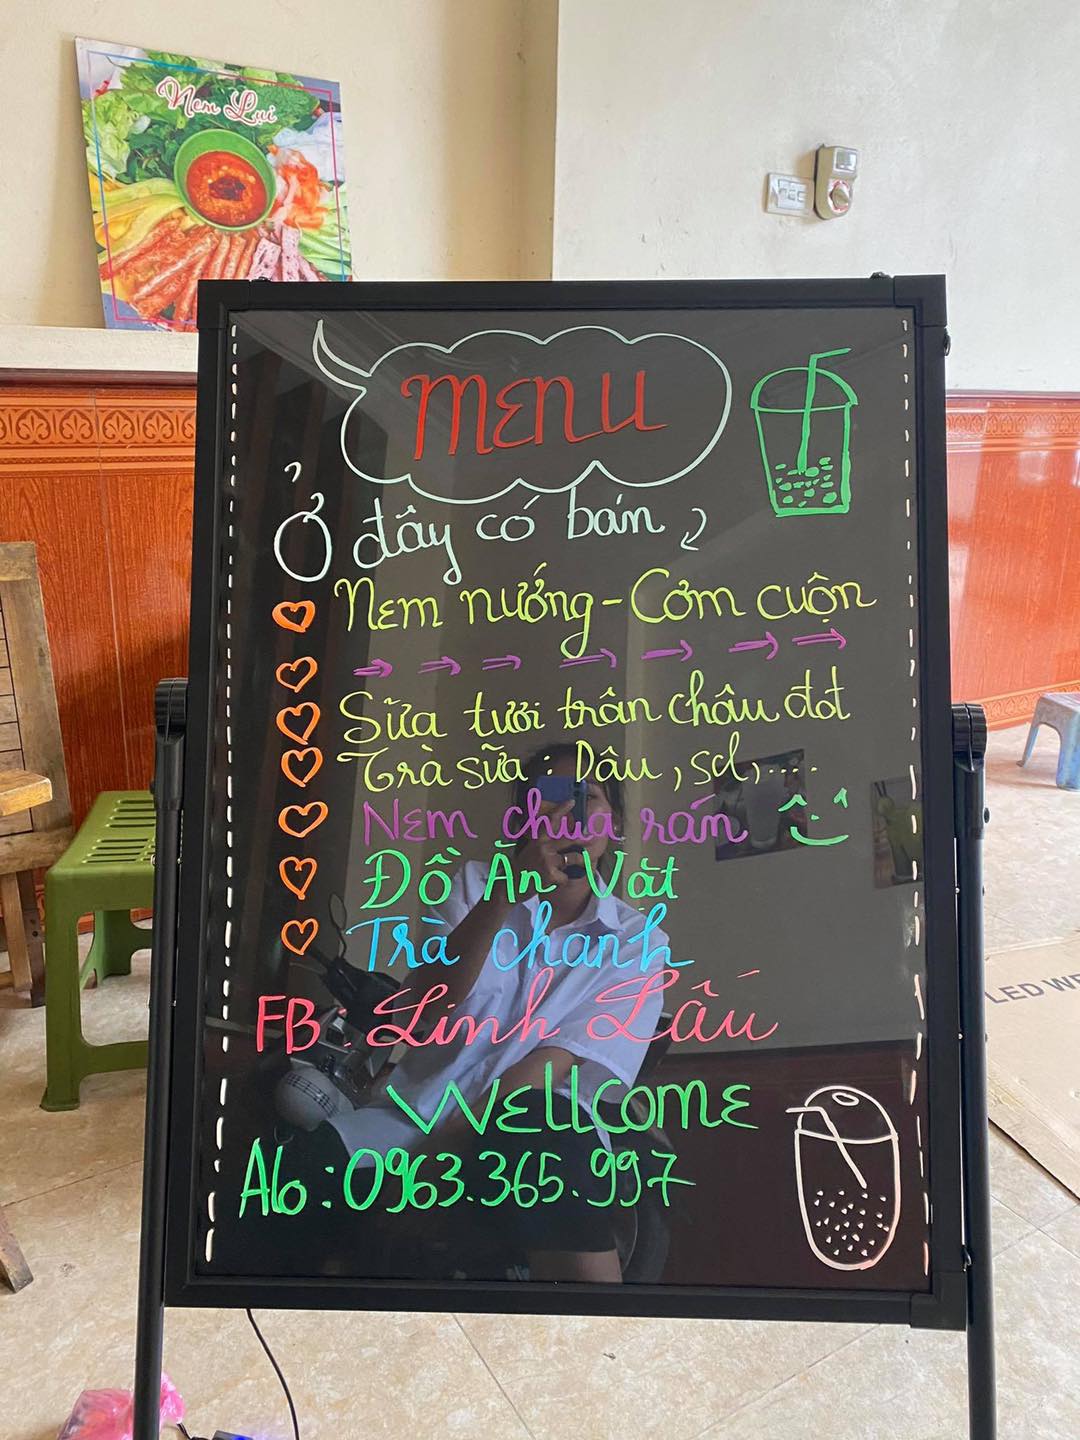 Nem Lụi
MENU
Ở đây có bán
Nem nướng - Cơm cuộn
Sữa tươi trân châu đđ
Trà sữa: Dâu, scl, ....
Nem chua rán
Đồ Ăn Vặt
Trà chanh
FB: Linh Lấu
Wellcome
Alo: 0963.365.997
LED WE